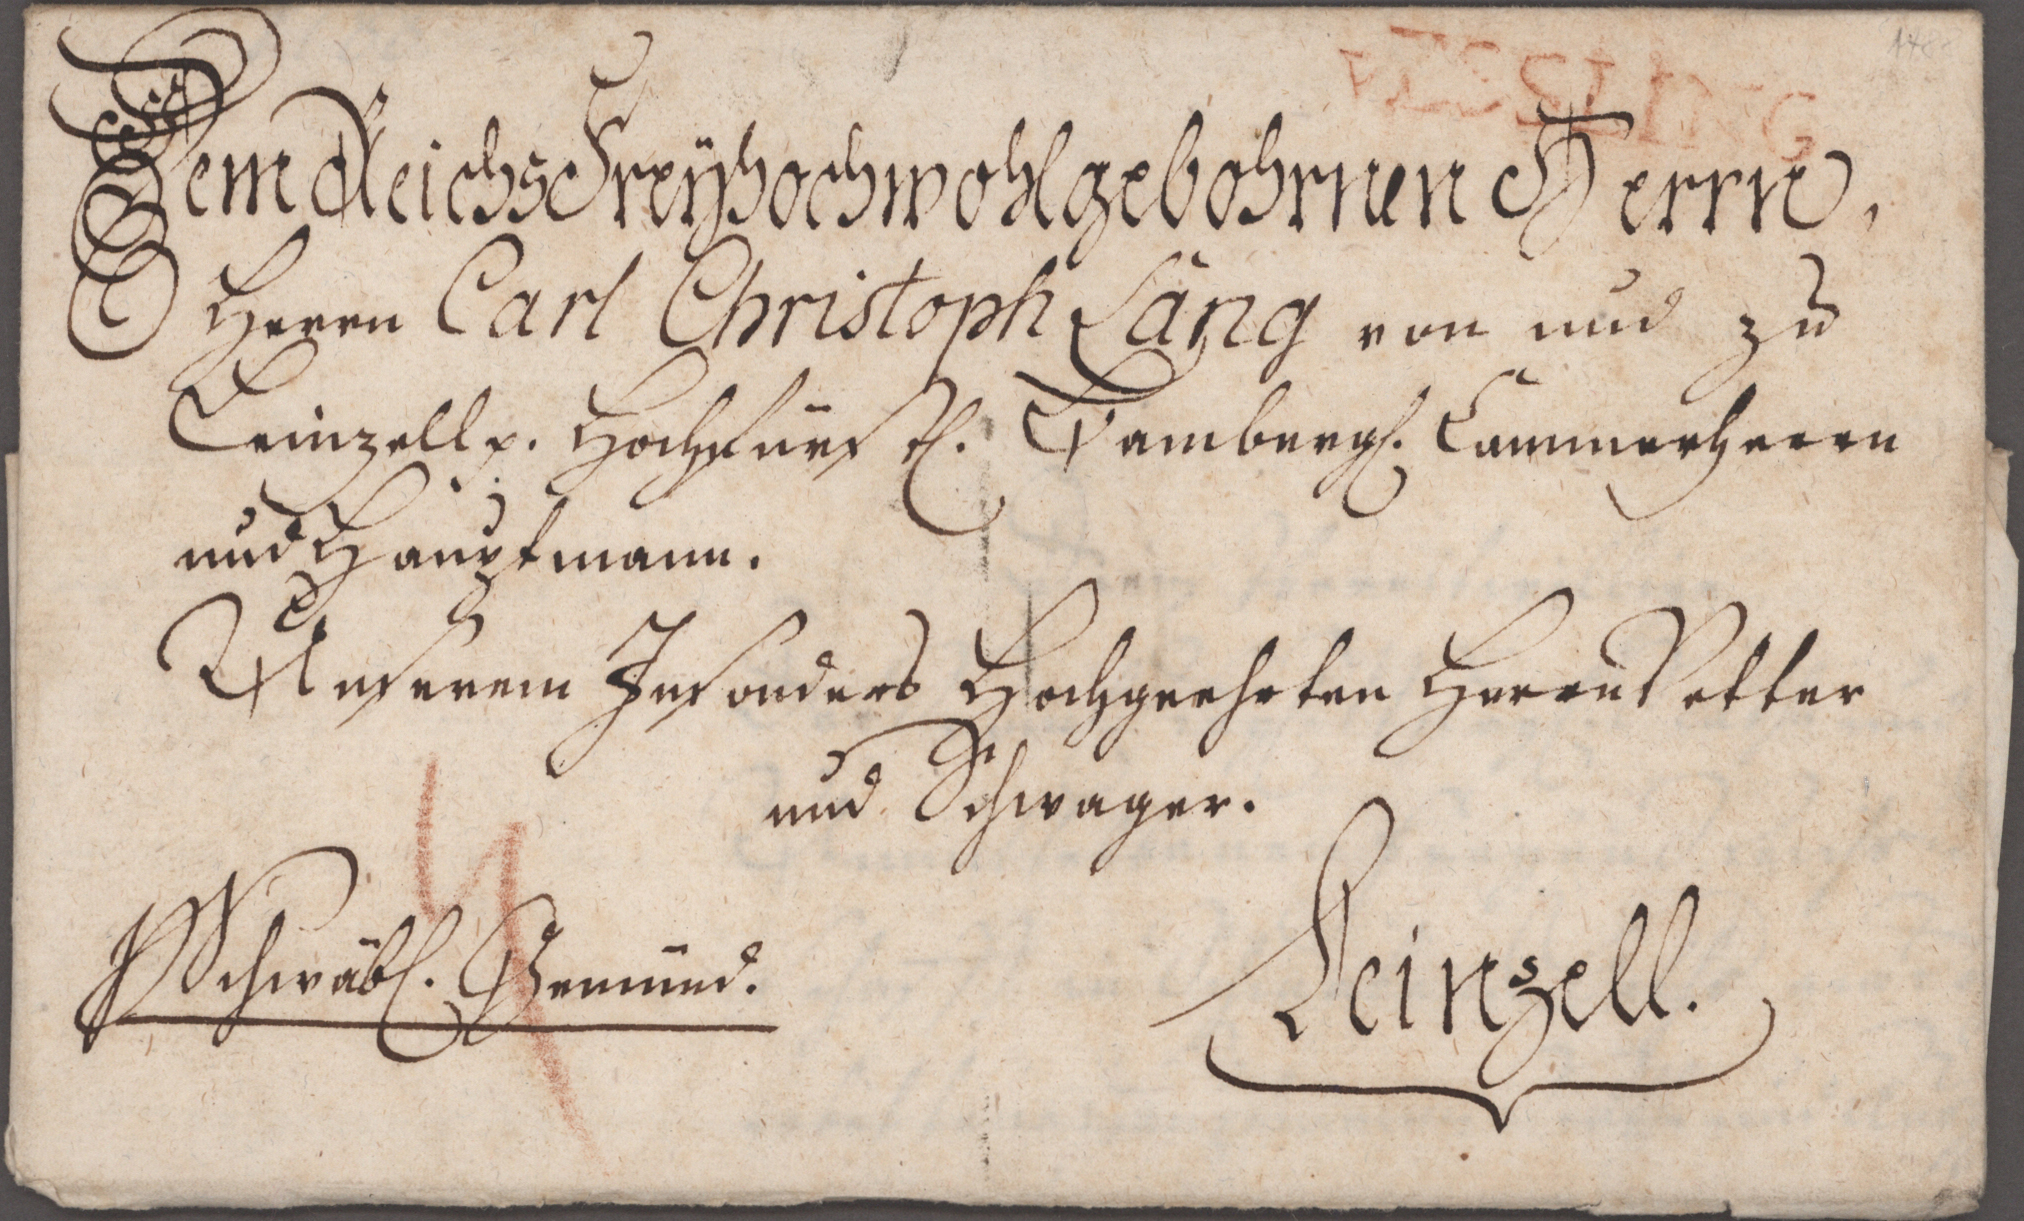 ESSLING
Dem ReichsFreÿhochwohlgebohrnen Herrn,
Herrn Carl Christoph Läng von und zu
Leinzell p. Hochfürstl. Bambergl. Cammerherrn
und Hauptmann.
Unserem Insonders Hochgeehrten Herrn Vetter
und Schwager.
Schwäbl. Gemünd.
Leinzell.